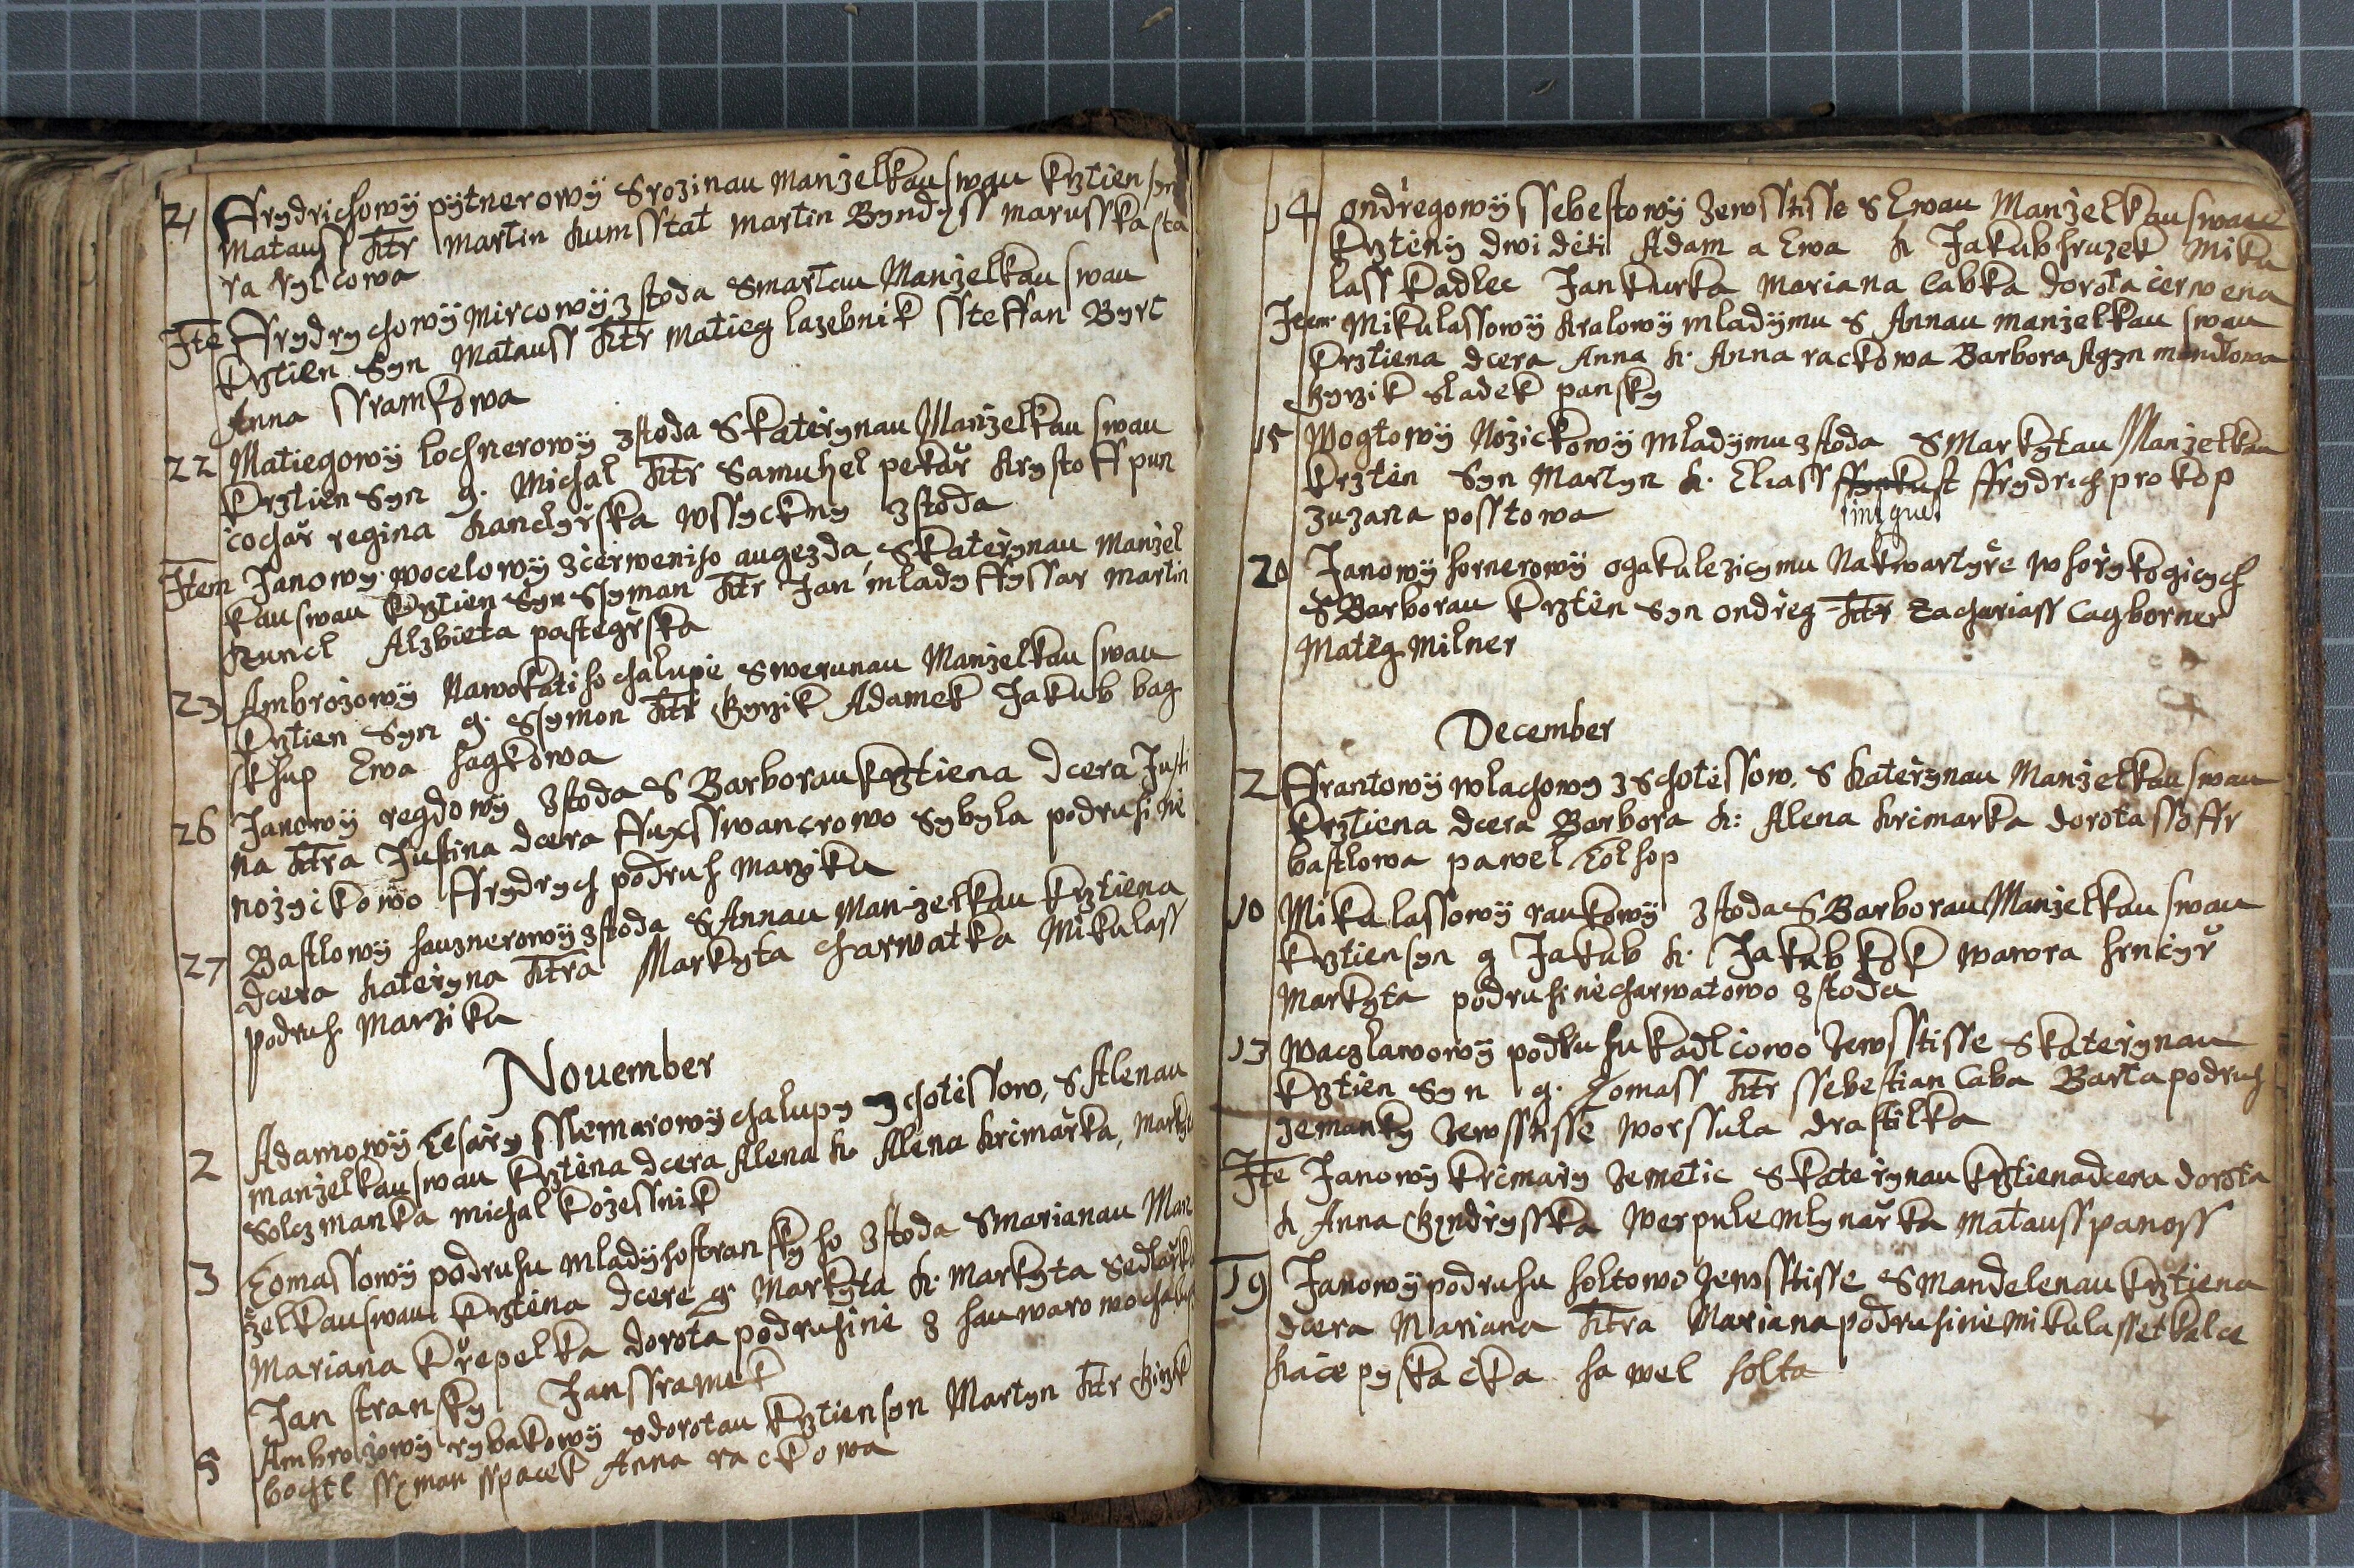 21 Ffrydrichowÿ pÿtnerowÿ S rozinau Manzelkau swau krztien syn
Matauss Ktr Martin kumsstat Martin Byndyss marusska sta
ra rylcowa
Ite Ffrydrychowÿ Mircowÿ z stoda S martau Manzelkau swau
krztien Syn Matauss Ktr Matieg lazebnik ssteffan Byrt
Anna ssramkowa
22 Matiegowÿ lochnerowÿ z stoda S katerynau Manzelkau swau
krztien Syn g. Michal Ktr Samuhel pekař krystoff pun
čochař regina kanclyřska wssyckny z stoda
Item Janowy wocelowÿ z čerweniho augezda, S katerynau manzel
kau swau krztien Syn Ssyman Ktr Jan mlady ffyssar martin
kuncl Alzbieta pastegřska
23 Ambrozowÿ Nawokatiho chalupie S werunau Manzelkau swau
krztien Syn g. Ssymon Ktr Gyrzik Adamek Jakub bag
skhup Ewa hagkowa
26 Janowÿ regdowÿ z stoda S Barborau krztiena Dcera Justi
na Ktra Justina dcera ffuxsswancrowo Sybyla podruhinie
nozyčkowo Ffrydrych podruh marziku
27 Bastlowÿ hauznerowÿ z stoda S Annau Manzelkau krztiena
dcera kateryna Ktra Markyta charwatka Mikulass
podruh Marziku
Nouember
2 Adamowÿ Tesařy sslemarowÿ chalupy z chotessow, S Alenau
manzelkau swau krztena dcera Alena k. Alena krčmařka, Markyta
Solczmanka michal kozessnik
3 Tomassowÿ podruhu mladÿho stranskyho z stoda S marianau Man
zelkau swau krztena dcere g. Markyta k. Markyta Sedlařka
Mariana křepelka dorota podruhinie z hauwarowo chalupy
Jan stransky Jan ssramek
5 Ambrozowÿ rybakowÿ S dorotau krztien syn Martyn Ktr Girzik
bochtl ssyman sspaček Anna račkowa
14 ondřegowÿ ssebestowÿ ze wsstisse S Ewau Manzelkau swau
krztenÿ dwi děti Adam a Ewa k Jakub hruzek Miku
lass kadlec Jan kurka Mariana Cabka dorota čerwena
Item Mikulassowÿ kralowÿ mladÿmu S Annau manzelkau swau
krztiena dcera Anna k. Anna račkowa Barbora
Gyrzik sladek pansky
15 Wogtowÿ Nozičkowÿ mladÿmu z stoda S Markytau Manzelkau
krzten Syn Martyn k. Eliass Ffrydrich prokop
zuzana posstowa
20 Janowÿ hornerowÿ ogaku lezicymu Na kwartyře w hořykogicych
S Barborau krzten Syn ondřeg Ktr Zachariass Cagborner
Matěg Milner
December
2 Ffrantowÿ wlachowy z Schotessow. S katerzynau Manzelkau swau
krztiena dcera Barbora k: Alena krčmarka dorota ssoffr
bastlowa pawel kolhop
10 Mikulassowÿ raukowÿ z stoda S Barborau Manzelkau swau
krztien syn g Jakub k. Jakub kok wawra hrnčyř
Markyta podruhinie charwatowo z stoda
13 Waczlawowÿ podruhu kadlcowo ze wsstisse S katerynau
krztien Syn g. Tomass Ktr ssebestian Caba Barta podruh
zemanky ze wsstisse worssula drastilka
Ite Janowÿ krčmařy ze metic S katerynau krztiena dcera dorota
k Anna Gyndryska werpule mlynařka matauss panoss
19 Janowÿ podruhu holtowo ze wsstisse S mandelenau krztiena
dcera Mariana Ktra Mariana podruhinie mikulasse tkalce
kače pyskačka hawel holta